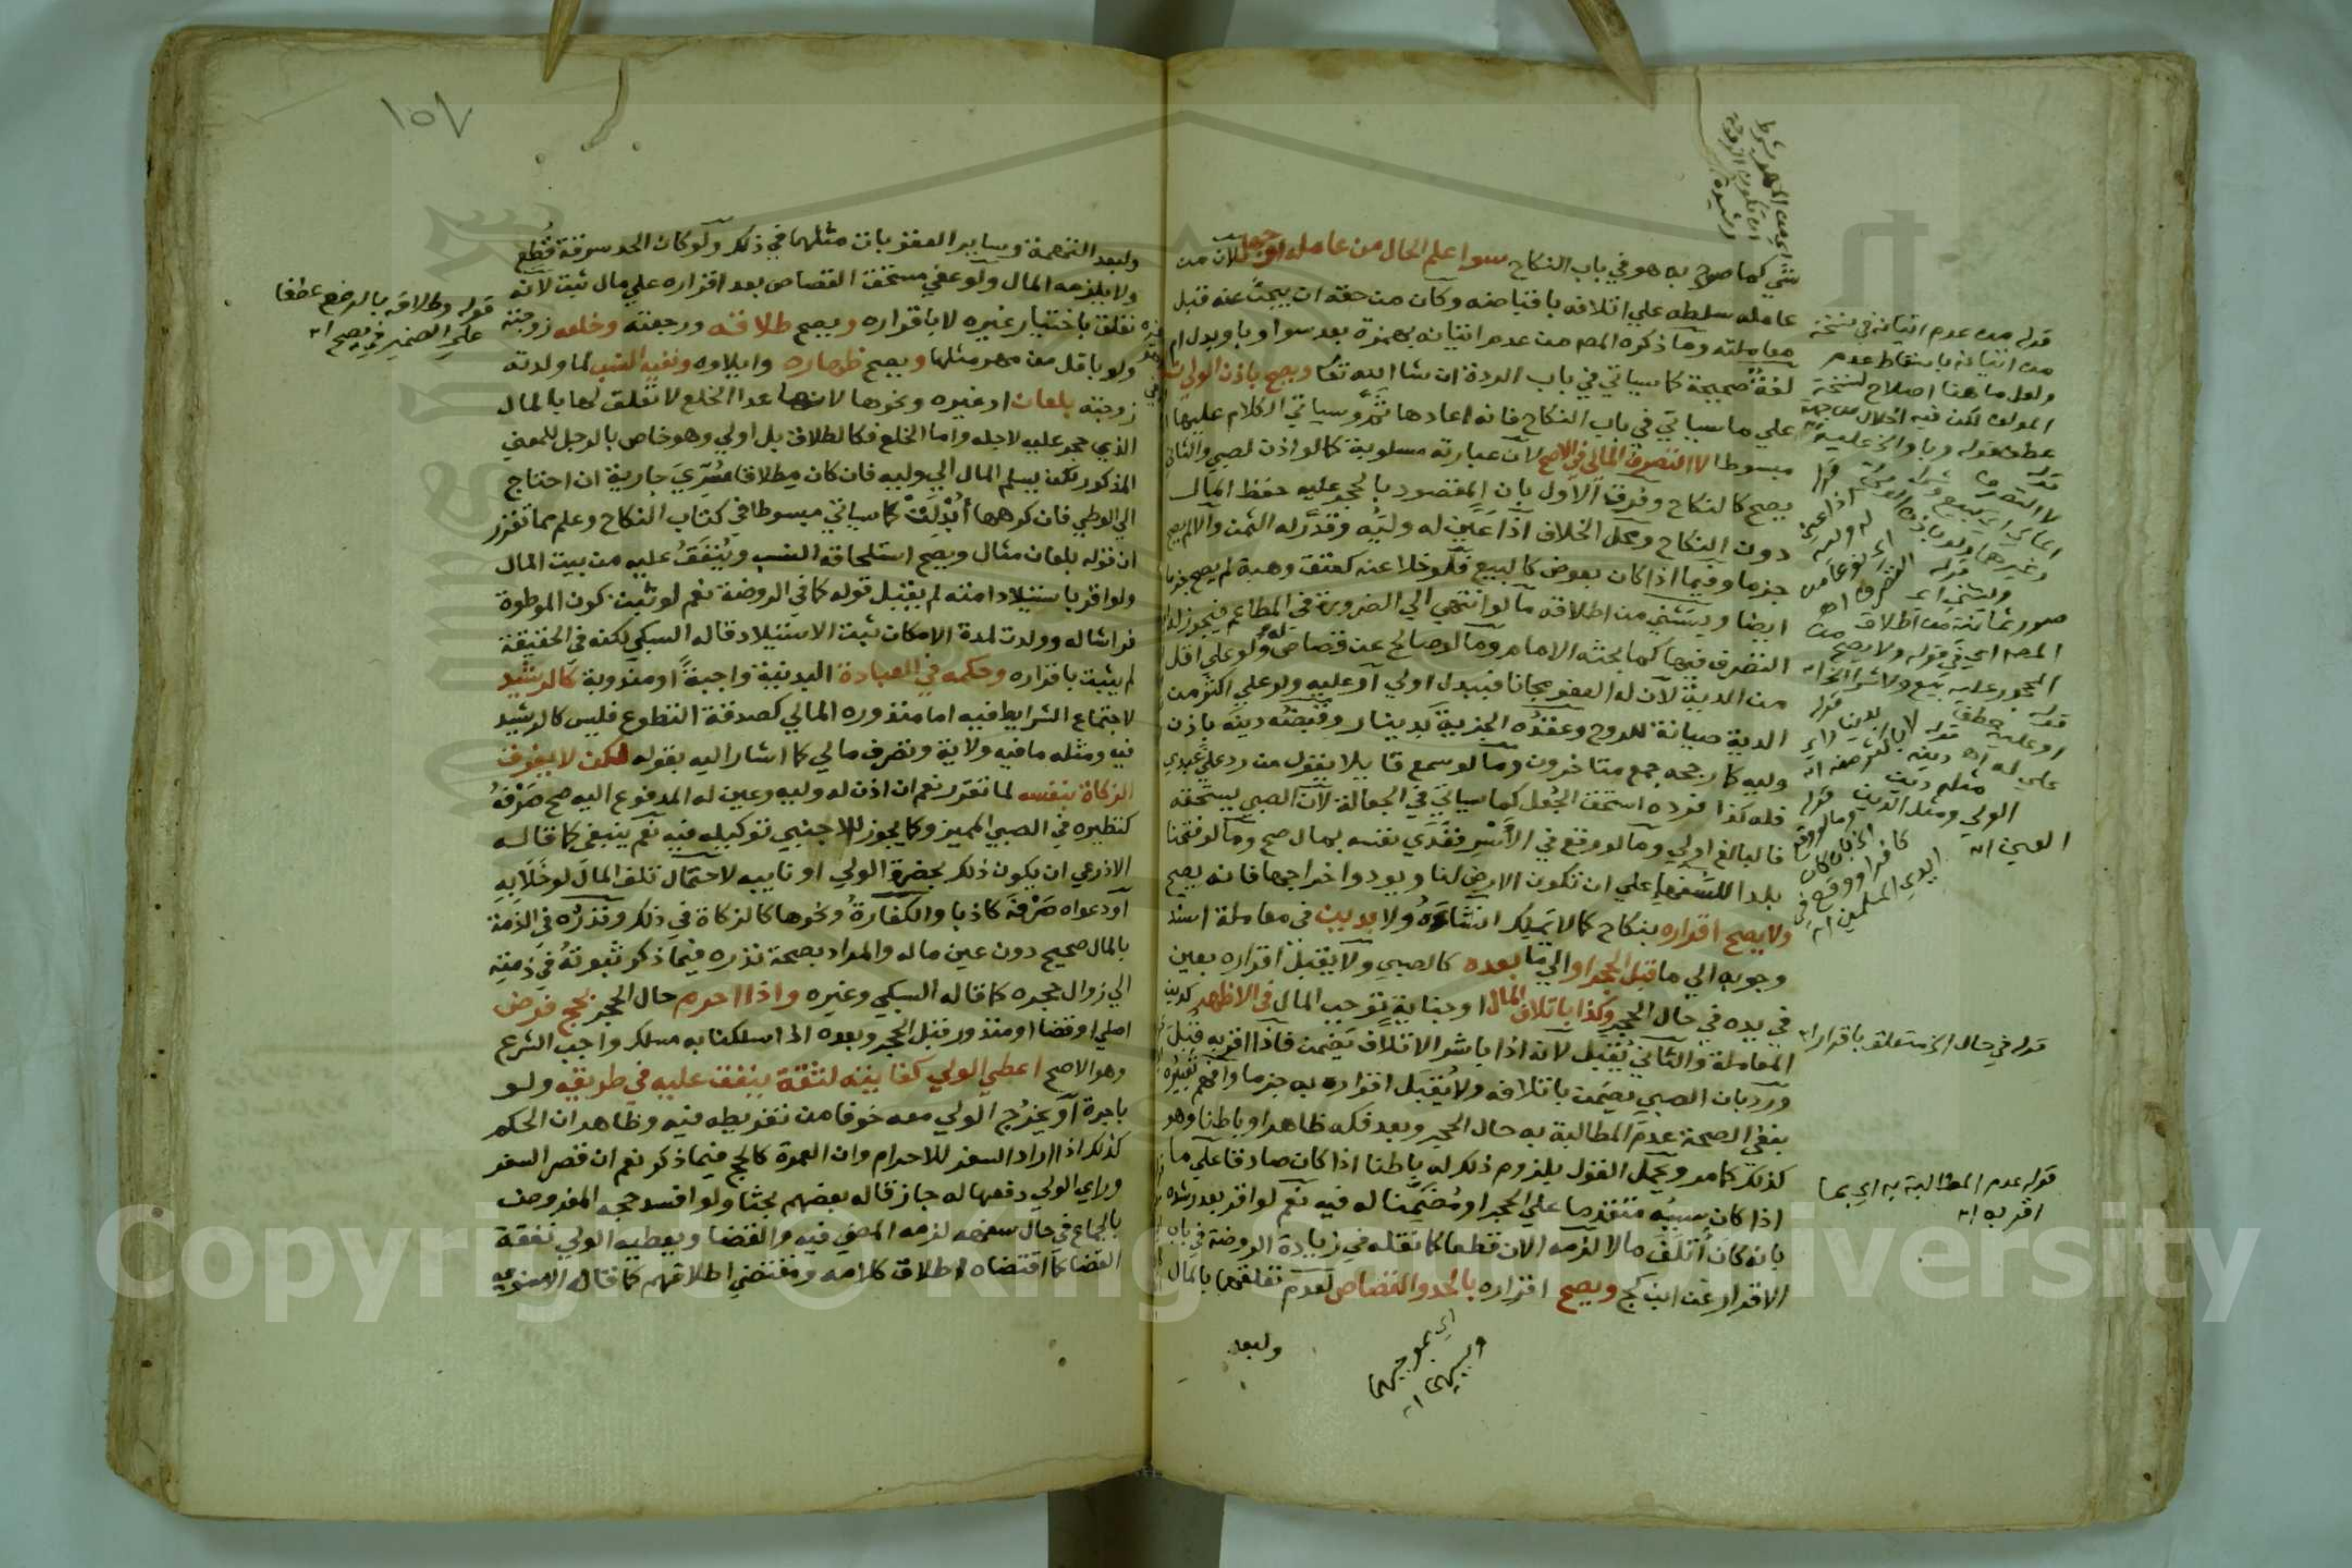 شي كما صرح به هو في باب النكاح سوا علم الحال من عامله او جهل لان من
عامله سلطه علي اتلافه باقباضه وكان من حقه ان يبحث عنه قبل
معاملته وما ذكره المص من عدم اتيانه بهمزة بعد سوا وباو بدل ام
لغة صحيحة كما سياتي في باب الردة ان شا الله تعا ويصح باذن الولي
علي ما سياتي في باب النكاح فانه اعادها ثم وسياتي الكلام عليها
مبسوطا لا التصرف المالي في الاصح لان عبارته مسلوبة كما لو اذن لصبي والثاني
يصح كالنكاح وفرق الاول بان المقصود بالحجر عليه حفظ المال
دون النكاح ومحل الخلاف اذا عين له وليه وقدر له الثمن والا لم يصح
جزما وفيما اذا كان بعوض كالبيع فلو خلا عنه كعتق وهبة لم يصح جزما
ايضا ويستثني من اطلاقه ما لو انتهي الي الضرورة في المطاعم فيجوز له
التصرف فيها كما بحثه الامام وما لو صالح عن قصاص له ولو علي اقل
من الدية لان له العفو مجانا فببدل اولي او عليه ولو علي اكثر من
الدية صيانة للروح وعقده الجزية بدينار وقبضه دينه باذن
وليه كما رجحه جمع متاخرون وما لو سمع قايلا يقول من رد علي عبدي
فله كذا فرده استحق الجعل كما سياتي في الجعالة لان الصبي يستحقه
فالبالغ اولي وما لو وقع في الاسر ففدي نفسه بمال صح وما لو فتحنا
بلدا للسفها علي ان تكون الارض لنا ويودوا خراجها فانه يصح
ولا يصح اقراره بنكاح كما لا يملك انشاءه ولا بدين في معاملة اسند
وجوبه الي ما قبل الحجر او الي ما بعده كالصبي ولا يقبل اقراره بعين
في يده في حال الحجر وكذا باتلاف المال او جناية توجب المال في الاظهر كدين
المعاملة والثاني يقبل لانه اذا باشر الاتلاف يضمن فاذا اقر به قبل
ورد بان الصبي يضمن باتلافه ولا يقبل اقراره به جزما وافهم تعبيره
بنفي الصحة عدم المطالبة به حال الحجر وبعد فكه ظاهرا وباطنا وهو
كذلك كما مر ويحمل القول بلزوم ذلك له باطنا اذا كان صادقا علي ما
اذا كان سببه متقدما علي الحجر او مضمنا له فيه نعم لو اقر بعد رشده
بانه كان اتلف مالا لزمه الان قطعا كما نقله في زيادة الروضة في باب
الاقرار عن ابن كج ويصح اقراره بالحد والقصاص لعدم تعلقهما بالمال
ولبعد
اي بموجبهما
وسببهما اه
اي من المهر بشرط
ان تكون الزوجة
رشيدة
قوله من عدم اتيانه في نسخة
من اتيانه باسقاط عدم
ولعل ما هنا اصلاح لنسخة
المولف لكن فيه اخلال من جهة
عطف قوله وباو الخ عليه
قوله في حال الخ متعلق باقرار اه
قوله عدم المطالبة به اي بما
اقر به اه
١٥٧
ولبعد التهمة وساير العقوبات مثلهما في ذلك ولو كان الحد سرقة قطع
ولا يلزمه المال ولو عفي مستحق القصاص بعد اقراره علي مال ثبت لانه
تعلق باختيار غيره لا باقراره ويصح طلاقه ورجعته وخلعه زوجته
ولو باقل من مهر مثلها ويصح ظهاره وايلاوه ونفيه النسب لما ولدته
زوجته بلعان او غيره ونحوها لانها ما عدا الخلع لا تعلق لها بالمال
الذي حجر عليه لاجله واما الخلع فكالطلاق بل اولي وهو خاص بالرجل للمعني
المذكور لكن يسلم المال الي وليه فان كان مطلاقا سري جارية ان احتاج
الي الوطي فان كرهها ابدلت كما سياتي مبسوطا في كتاب النكاح وعلم مما تقرر
ان قوله بلعان مثال ويصح استلحاقه النسب وينفق عليه من بيت المال
ولو اقر باستيلاد امته لم يقبل قوله كما في الروضة نعم لو ثبت كون الموطوة
فراشا له وولدت لمدة الامكان ثبت الاستيلاد قاله السبكي لكنه في الحقيقة
لم يثبت باقراره وحكمه في العبادة البدنية واجبة او مندوبة كالرشيد
لاجتماع الشرايط فيه اما منذوره المالي كصدقة التطوع فليس كالرشيد
فيه ومثله ما فيه ولاية وتصرف مالي كما اشار اليه بقوله لكن لا يفرق
الزكاة بنفسه لما تقرر نعم ان اذن له وليه وعين له المدفوع اليه صح صرفه
كنظيره في الصبي المميز وكما يجوز للاجنبي توكيله فيه نعم ينبغي كما قاله
الاذرعي ان يكون ذلك بحضرة الولي او نايبه لاحتمال تلف المال لو خلا به
او دعواه صرفه كاذبا والكفارة ونحوها كالزكاة في ذلك ونذره في الذمة
بالمال صحيح دون عين ماله والمراد بصحة نذره فيما ذكر ثبوته في ذمته
الي زوال حجره كما قاله السبكي وغيره واذا احرم حال الحجر بحج فرض
اصلي او قضا او منذور قبل الحجر وبعده اذا سلكنا به مسلك واجب الشرع
وهو الاصح اعطي الولي كفايته لثقة ينفق عليه في طريقه ولو
باجرة او يخرج الولي معه خوفا من تفريطه فيه وظاهر ان الحكم
كذلك اذا اراد السفر للاحرام وان العمرة كالحج فيما ذكر نعم ان قصر السفر
وراي الولي دفعها له جاز قاله بعضهم بحثا ولو افسد حجه المفروض
بالجماع في حال سفهه لزمه المضي فيه والقضا ويعطيه الولي نفقة
القضا كما اقتضاه اطلاق كلامه ومقتضي اطلاقهم كما قاله الاسنوي
قوله وطلاقه بالرفع عطفا
علي الضمير في يصح اه
Copyright © King Saud University